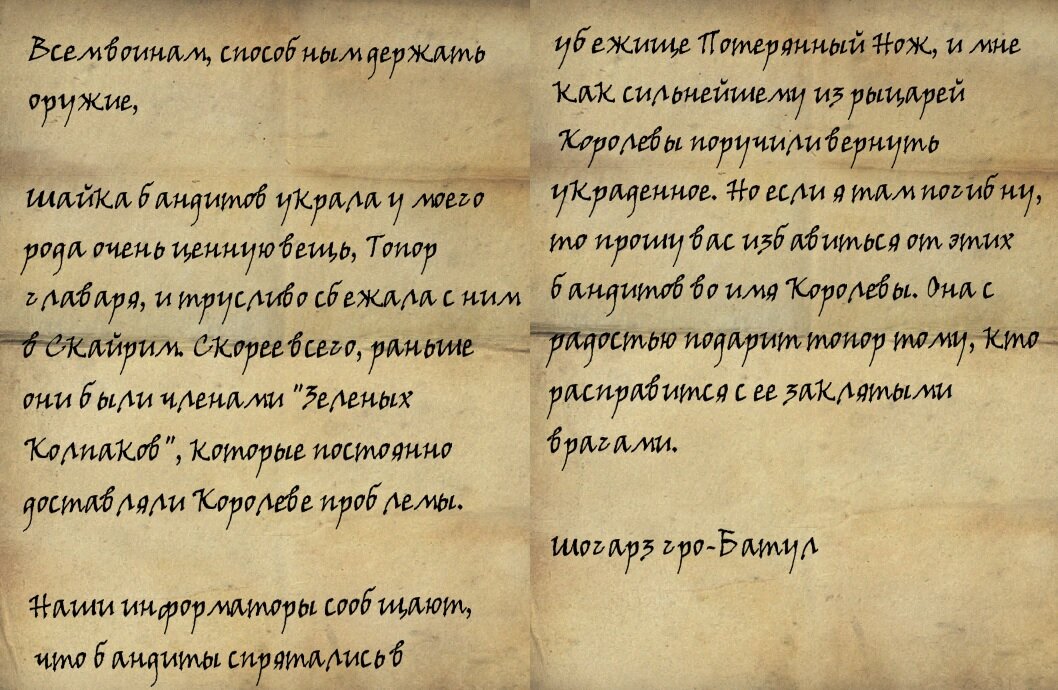 Всем воинам, способным держать
оружие,
Шайка бандитов украла у моего
рода очень ценную вещь, Топор
главаря, и трусливо сбежала с ним
в Скайрим. Скорее всего, раньше
они были членами "Зеленых
Колпаков", которые постоянно
доставляли Королеве проблемы.
Наши информаторы сообщают,
что бандиты спрятались в
убежище Потерянный Нож, и мне
как сильнейшему из рыцарей
Королевы поручили вернуть
украденное. Но если я там погибну,
то прошу вас избавиться от этих
бандитов во имя Королевы. Она с
радостью подарит топор тому, кто
расправится с ее заклятыми
врагами.
Шогарз гро-Батул